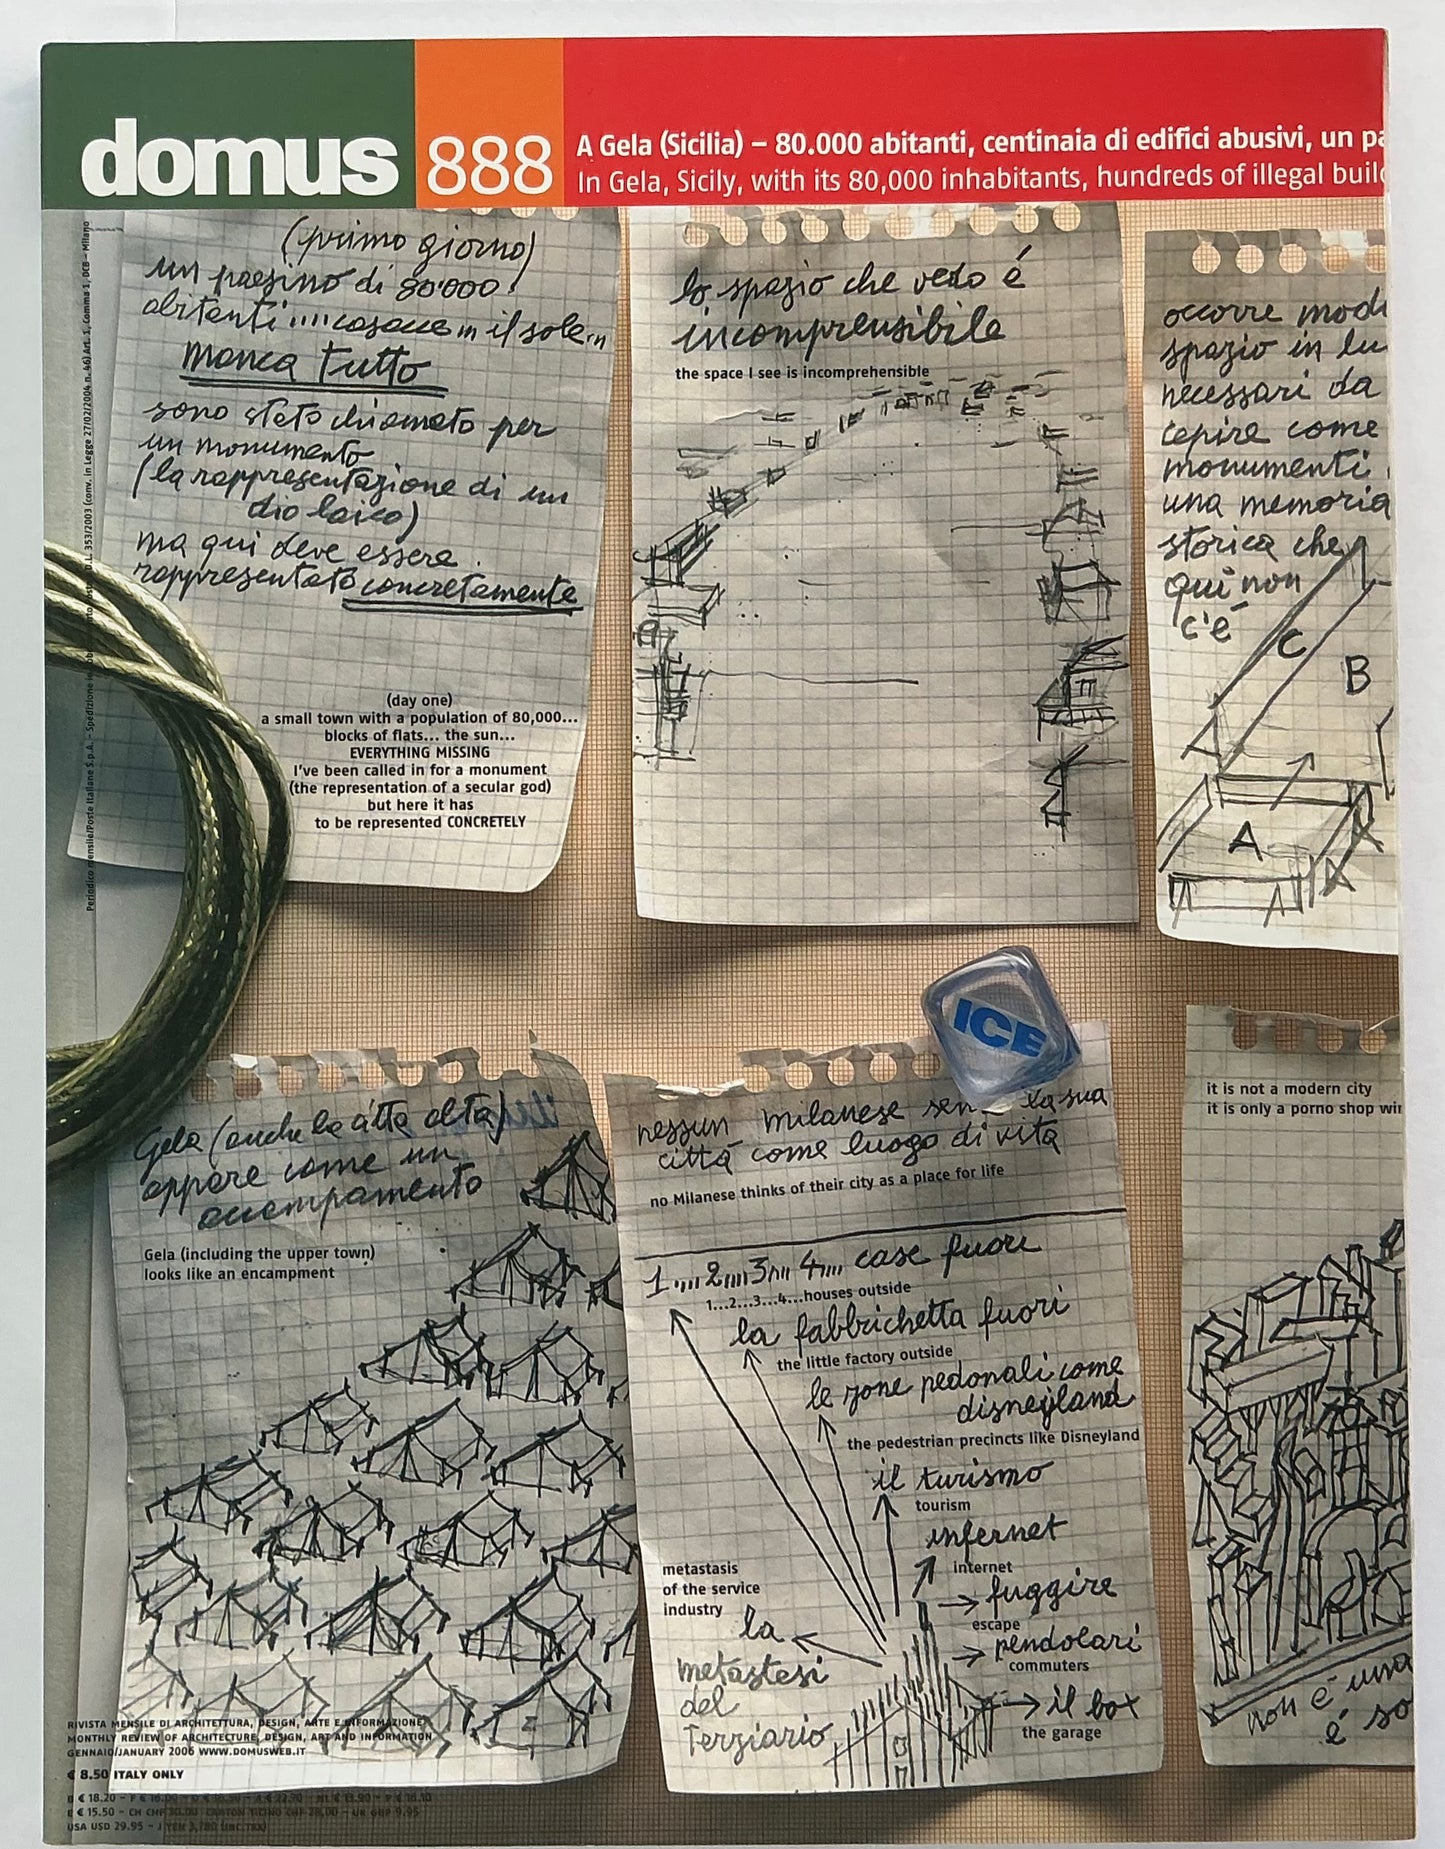 domus
888
A Gela (Sicilia) – 80.000 abitanti, centinaia di edifici abusivi, un pa
In Gela, Sicily, with its 80,000 inhabitants, hundreds of illegal build
(primo giorno)
un paesino di 80'000
abitanti .... casacce ... il sole...
manca tutto
sono stato chiamato per
un monumento
(la rappresentazione di un
dio laico)
ma qui deve essere
rappresentato concretamente
(day one)
a small town with a population of 80,000...
blocks of flats... the sun...
EVERYTHING MISSING
I've been called in for a monument
(the representation of a secular god)
but here it has
to be represented CONCRETELY
lo spazio che vedo é
incomprensibile
the space I see is incomprehensible
occorre modi
spazio in lu
necessari da
cepire come
monumenti
una memoria
storica che
qui non
c'é
C
B
A
Periodico mensile/Poste Italiane S.p.A. – Spedizione in D.L. 353/2003 (conv. in Legge 27/02/2004 n. 46) Art. 1, Comma 1, DCB – Milano
ICE
Gela (anche la città alta)
appare come un
accampamento
Gela (including the upper town)
looks like an encampment
nessun milanese sen la sua
città come luogo di vita
no Milanese thinks of their city as a place for life
1....2....3....4.... case fuori
1...2...3...4...houses outside
la fabbrichetta fuori
the little factory outside
le zone pedonali come
disneyland
the pedestrian precincts like Disneyland
il turismo
tourism
internet
internet
fuggire
escape
pendolari
commuters
il box
the garage
metastasis
of the service
industry
la
metastasi
del
Terziario
it is not a modern city
it is only a porno shop win
non é una
é so
RIVISTA MENSILE DI ARCHITETTURA, DESIGN, ARTE E INFORMAZIONE
MONTHLY REVIEW OF ARCHITECTURE, DESIGN, ART AND INFORMATION
GENNAIO/JANUARY 2006 WWW.DOMUSWEB.IT
€ 8.50 ITALY ONLY
€ 18.20 –
E € 15.50 – CH CHF 30.00 CANTON TICINO CHF 28.00 – UK GBP 9.95
USA USD 29.95 – J YEN 3,780 (INC.TAX)